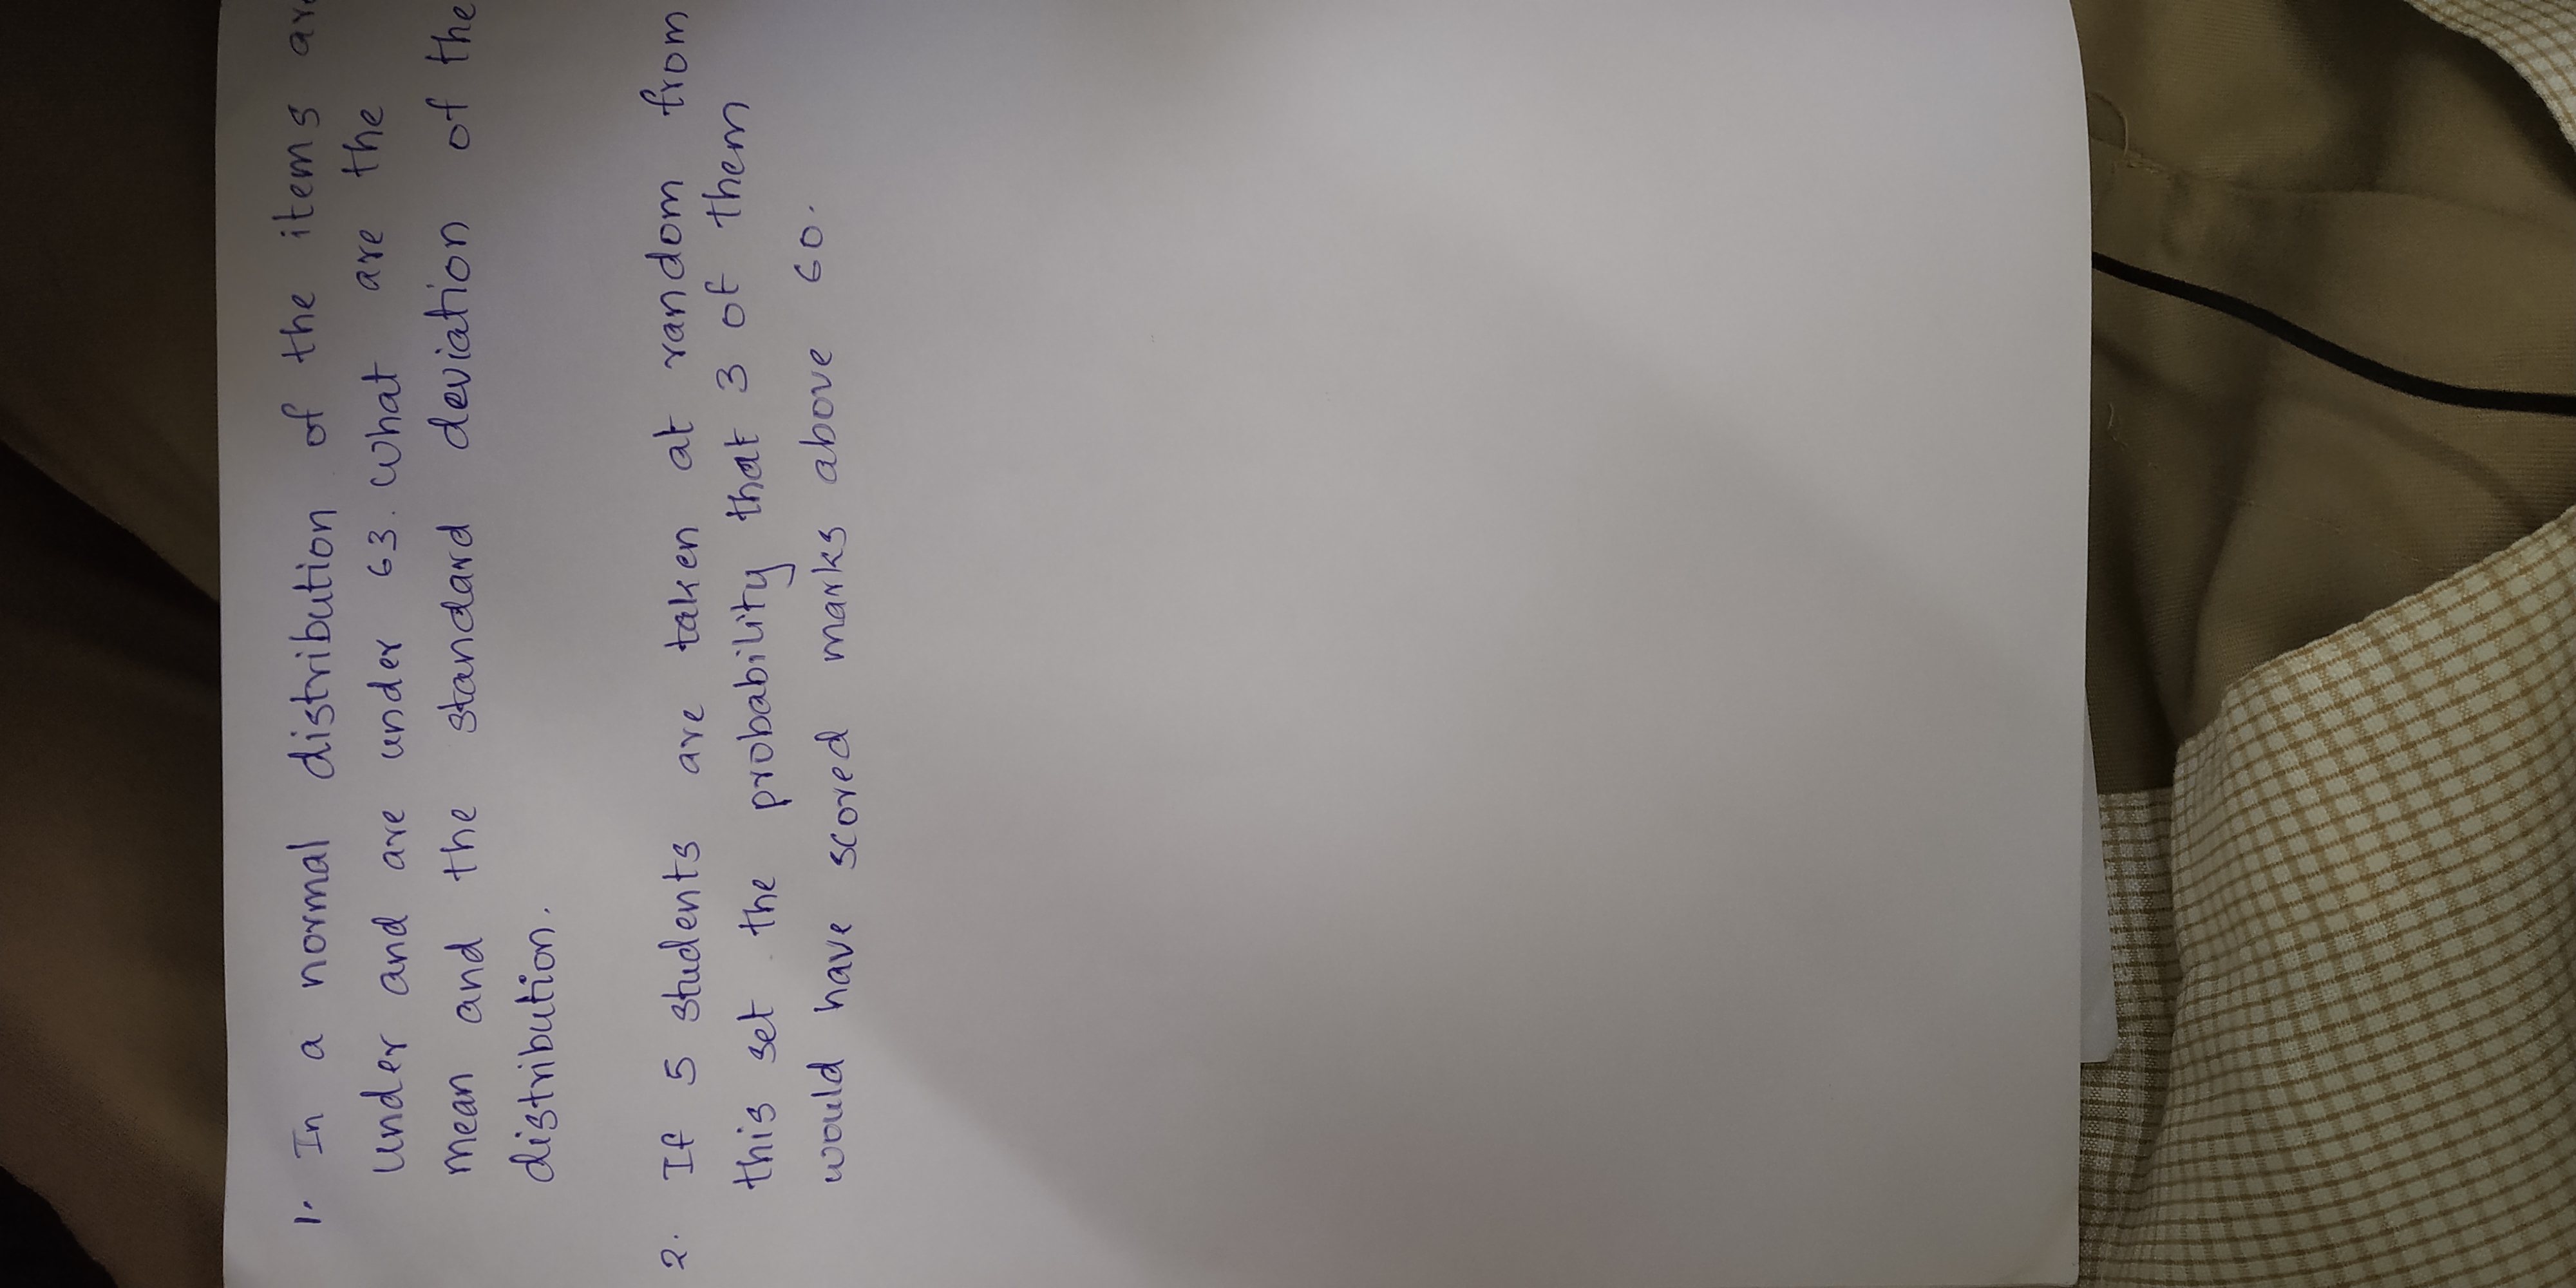 1. In a normal distribution of the items are
under and are under 63. What are the
mean and the standard deviation of the
distribution.
2. If 5 students are taken at random from
this set the probability that 3 of them
would have scored marks above 60.